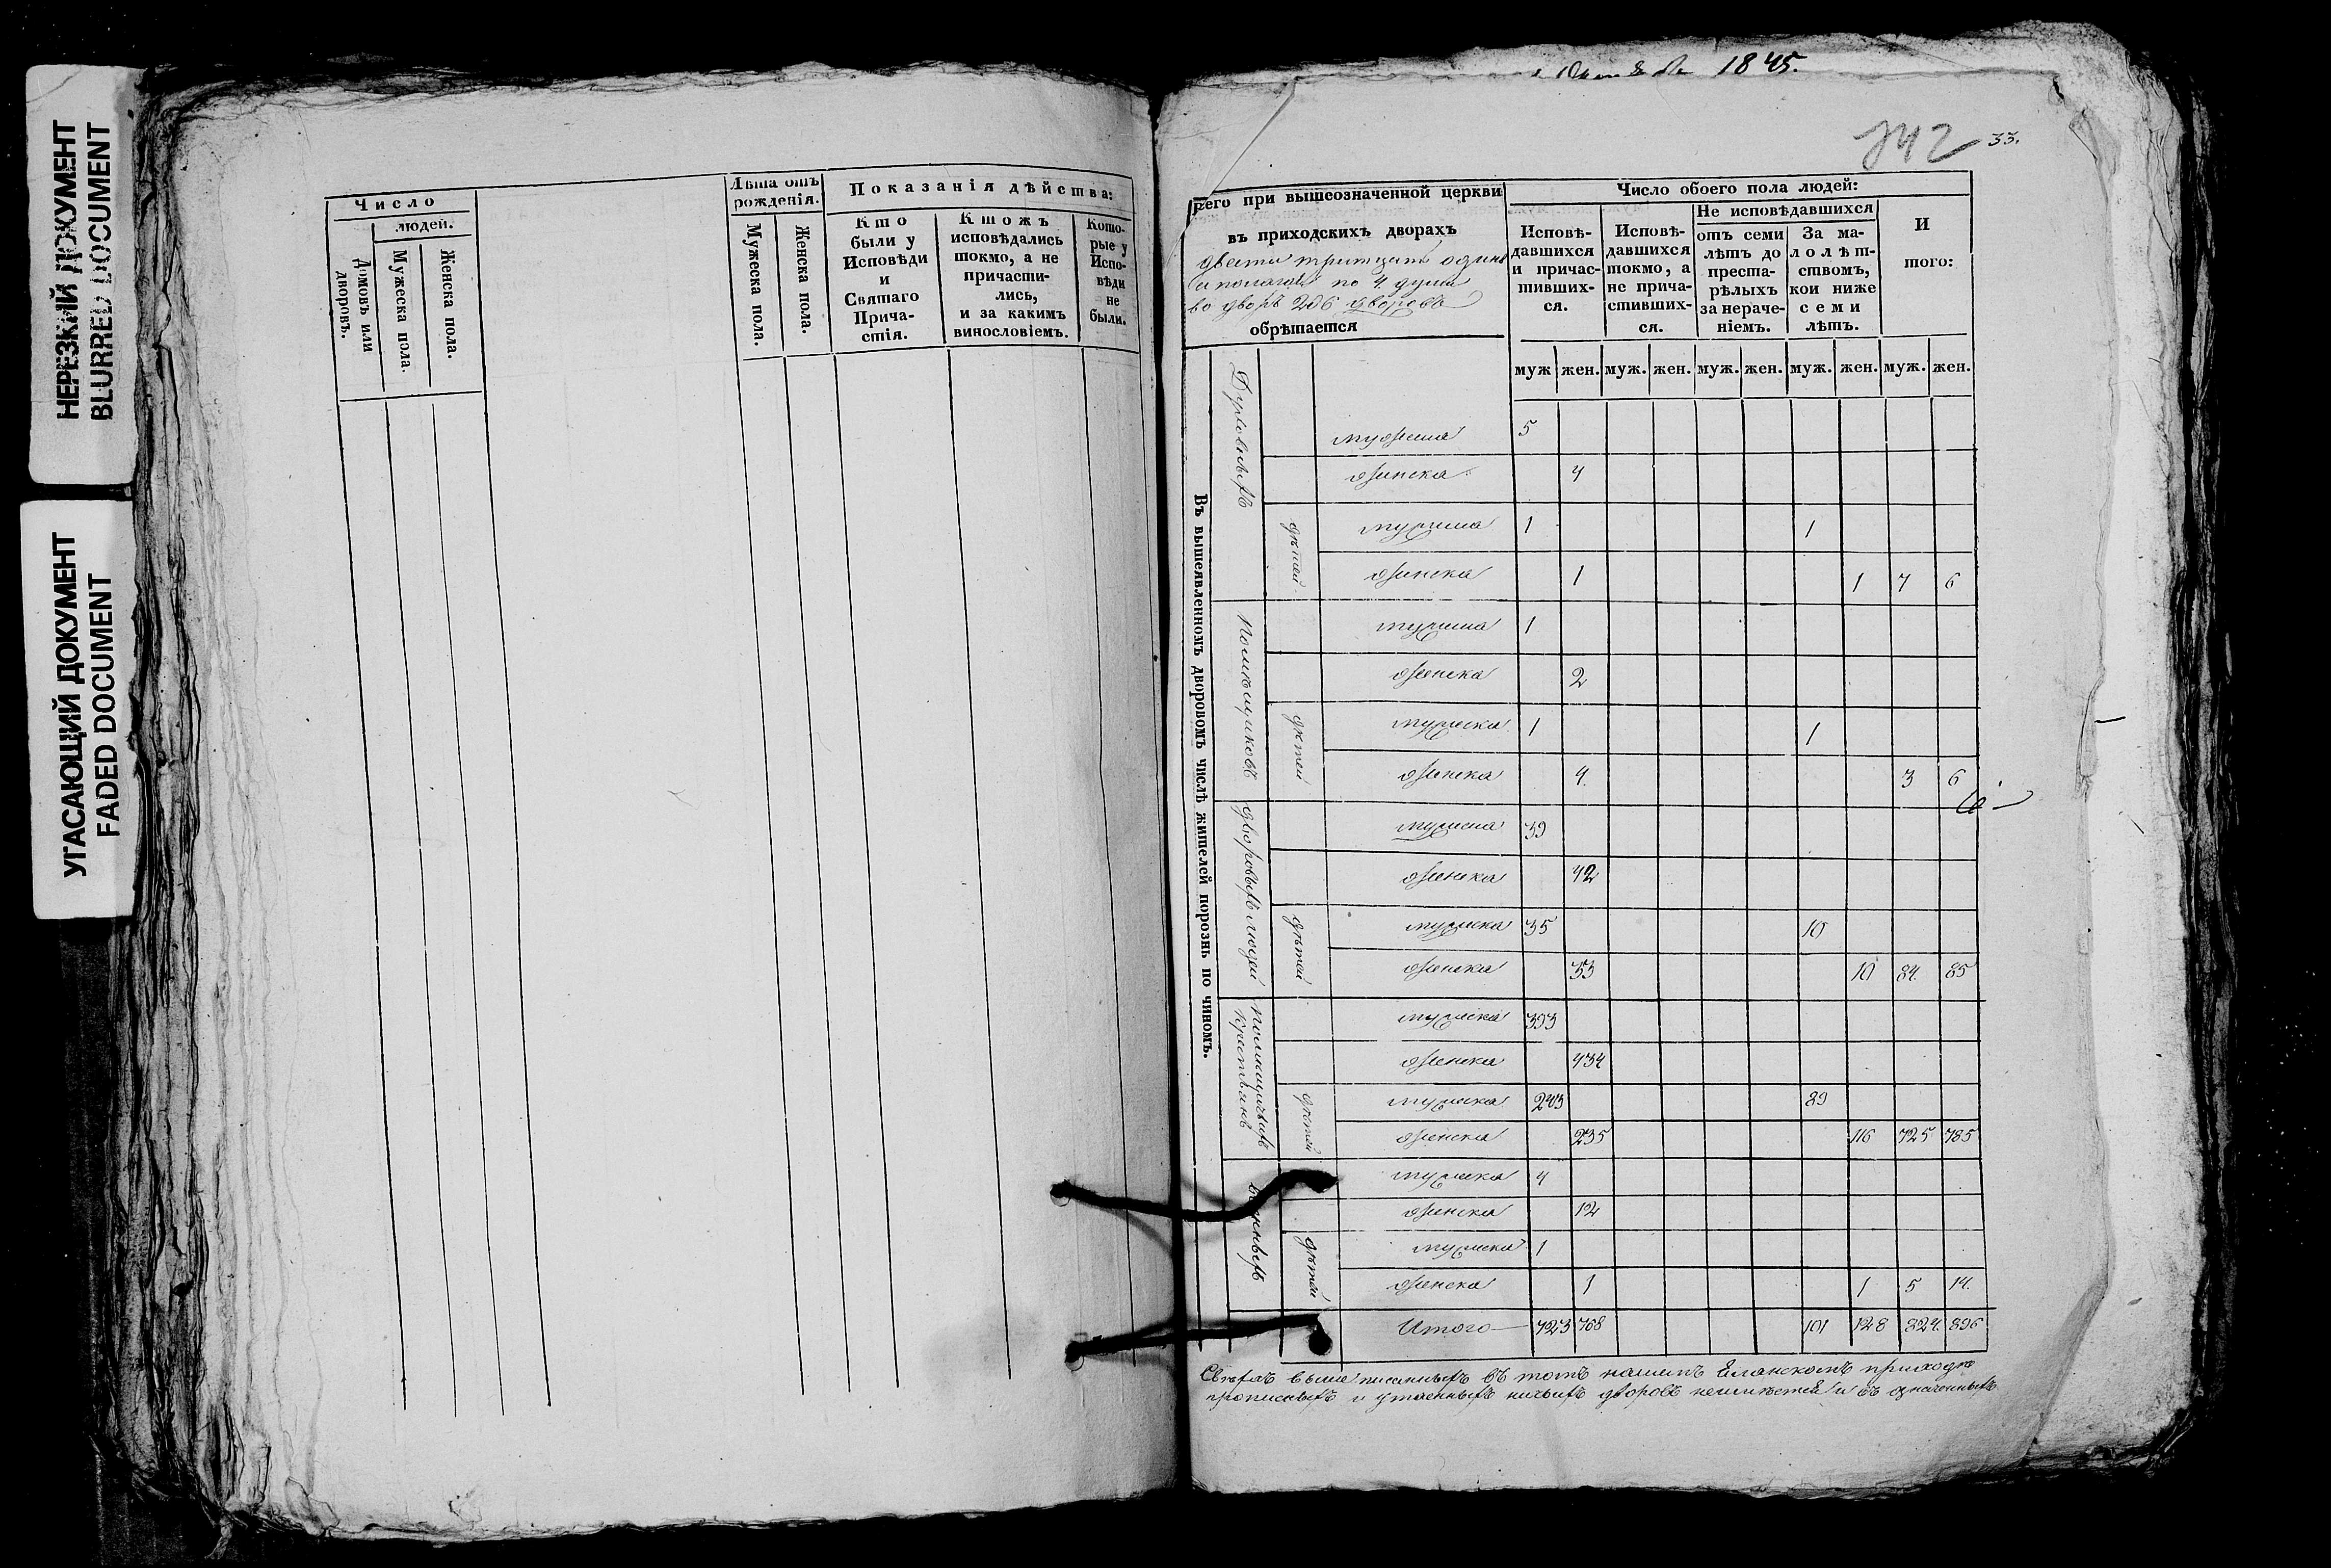 НЕРЕЗКИЙ ДОКУМЕНТ
BLURRED DOCUMENT
УГАСАЮЩИЙ ДОКУМЕНТ
FADED DOCUMENT
Число
людей.
Домовъ или дворовъ.
Мужеска пола.
Женска пола.
Лѣта отъ рожденія.
Мужеска пола.
Женска пола.
Показанія дѣйства:
Кто были у Исповѣди и Святаго Причастія.
Ктожъ исповѣдались токмо, а не причастились, и за какимъ винословіемъ.
Которые у Исповѣди не были.
1845.
742 33.
при вышеозначенной церкви
въ приходскихъ дворахъ
двести тритцать одинъ
а полагая по 4 души
во дворъ 206 дворовъ
обрѣтается
Число обоего пола людей:
Исповѣдавшихся и причастившихся.
Исповѣдавшихся токмо, а не причастившихся.
Не исповѣдавшихся
отъ семи лѣтъ до престарѣлыхъ за нераченіемъ.
За малолѣтствомъ, кои ниже семи лѣтъ.
И того:
муж жен. муж. жен. муж. жен. муж. жен. муж. жен.
Въ вышеявленномъ дворовомъ числѣ жителей порознь по чиномъ.
Духовныхъ
мужеска 5
женска 4
дѣтей
мужеска 1 1
женска 1 1 7 6
Помѣщиковъ
мужеска 1
женска 2
дѣтей
мужеска 1 1
женска 4 3 6
дворовыхъ людей
мужеска 39
женска 42
дѣтей
мужеска 35 10
женска 33 10 84. 85
помѣщичьихъ крестьянъ
мужеска 393
женска 434
дѣтей
мужеска 243 89
женска 235 116 725 785
военныхъ
мужеска 4
женска 12
дѣтей
мужеска 1
женска 1 1 5 14.
Итого 723 768 101 128 824. 896
Сверхъ выше писанныхъ въ томъ нашемъ Еланскомъ приходѣ
прописныхъ и утаенныхъ ничьихъ дворовъ неимѣется и въ означенныхъ